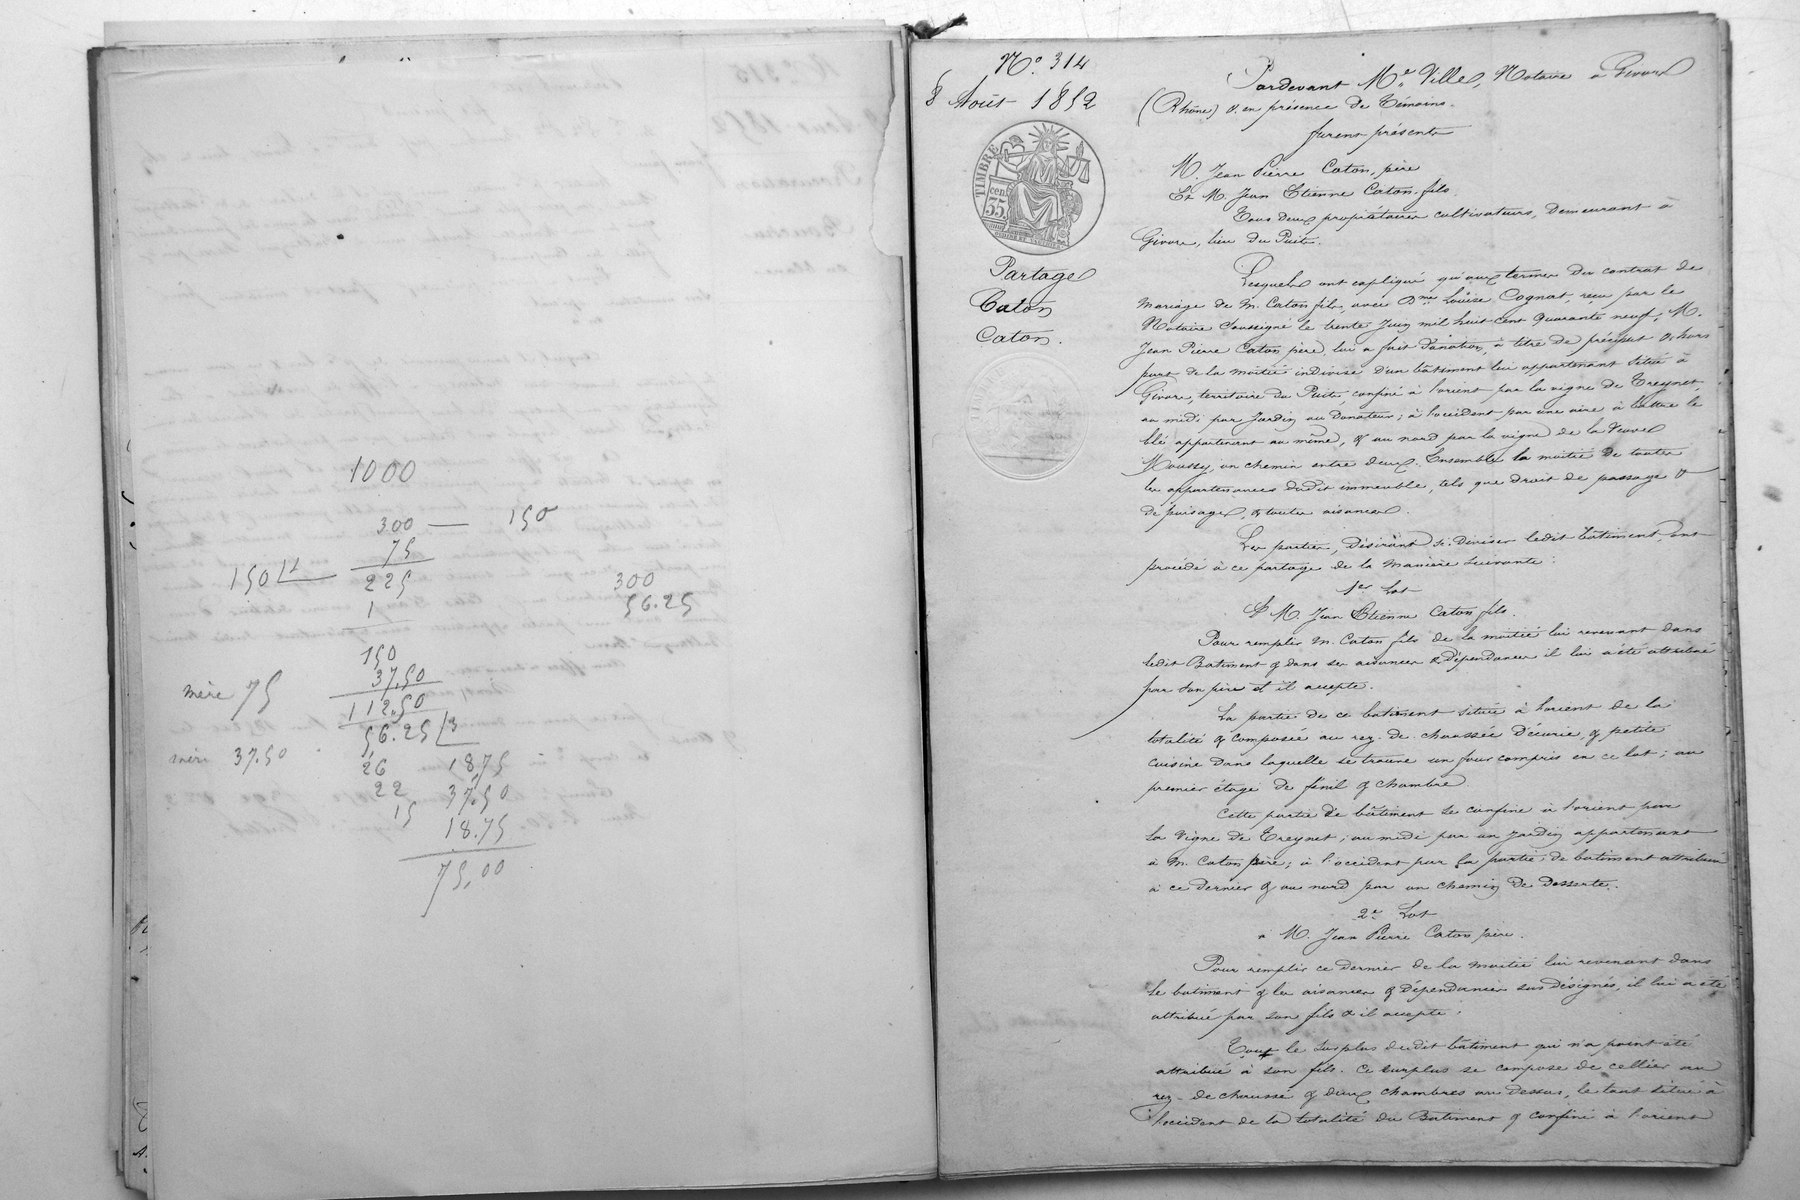 1000
300 — 150
75
150 ⌊1
225
1
300
56.25
150
37.50
mère 75
112.50
56.25 ⌊3
mère 37.50
26
18.75
22
37.50
15
18.75
75,00
N.° 314
8 Août 1852
TIMBRE
35 cen.
Partage
Caton
Caton.
Pardevant Me. Ville, Notaire à Givors
(Rhône) & en présence de Témoins.
furent présents
M. Jean Pierre Caton, père
Et M. Jean Etienne Caton, fils.
Tous deux propriétaires cultivateurs, demeurant à
Givors, lieu du Puits.
Lesquels ont expliqué qu'aux termes du contrat de
mariage de M. Caton fils, avec Dme Louise Cognat, reçu par le
Notaire soussigné le trente Juin mil huit cent quarante neuf; M.
Jean Pierre Caton père, lui a fait donation, à titre de préciput & hors
part de la moitié indivise d'un bâtiment lui appartenant situé à
Givors, territoire du Puits, confiné à l'orient par la vigne de Treynet,
au midi par Jardin au Donateur; à l'occident par une aire à battre le
blé appartenant au même, & au nord par la vigne de la Veuve
Moussy, un chemin entre deux. Ensemble la moitié de toutes
les appartenances dudit immeuble, tels que droit de passage &
de puisage, & toutes aisances.
Les parties, désirant se diviser ledit bâtiment, ont
procédé à ce partage de la manière suivante:
1er Lot
à M. Jean Etienne Caton fils.
Pour remplir M. Caton fils de la moitié lui revenant dans
ledit Batiment & dans ses aisances & dépendances il lui a été attribué
par son père et il accepte.
La partie de ce batiment située à l'orient de la
totalité & composée au rez-de-chaussée d'écurie, & petite
cuisine dans laquelle se trouve un four compris en ce lot; au
premier étage de fénil & chambre.
Cette partie de bâtiment se confine à l'orient par
la vigne de Treynet; au midi par un Jardin appartenant
à M. Caton père; à l'occident par la partie de batiment attribuée
à ce dernier & au nord par un chemin de desserte.
2e Lot
à M. Jean Pierre Caton père.
Pour remplir ce dernier de la moitié lui revenant dans
le batiment & les aisances & dépendances sus désignés, il lui a été
attribué par son fils & il accepte:
Tout le surplus dudit bâtiment qui n'a point été
attribué à son fils. Ce surplus se compose de cellier au
rez-de-chaussé & deux chambres au dessus, le tout situé à
l'occident de la totalité du Batiment & confiné à l'orient